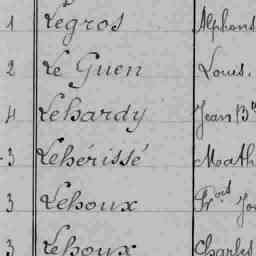 1 Legros Alphons
2 Le Guen Louis.
4 Lehardy Jean Bte
3 Lehérissé Math
3 Lehoux
3 Lehoux Charles